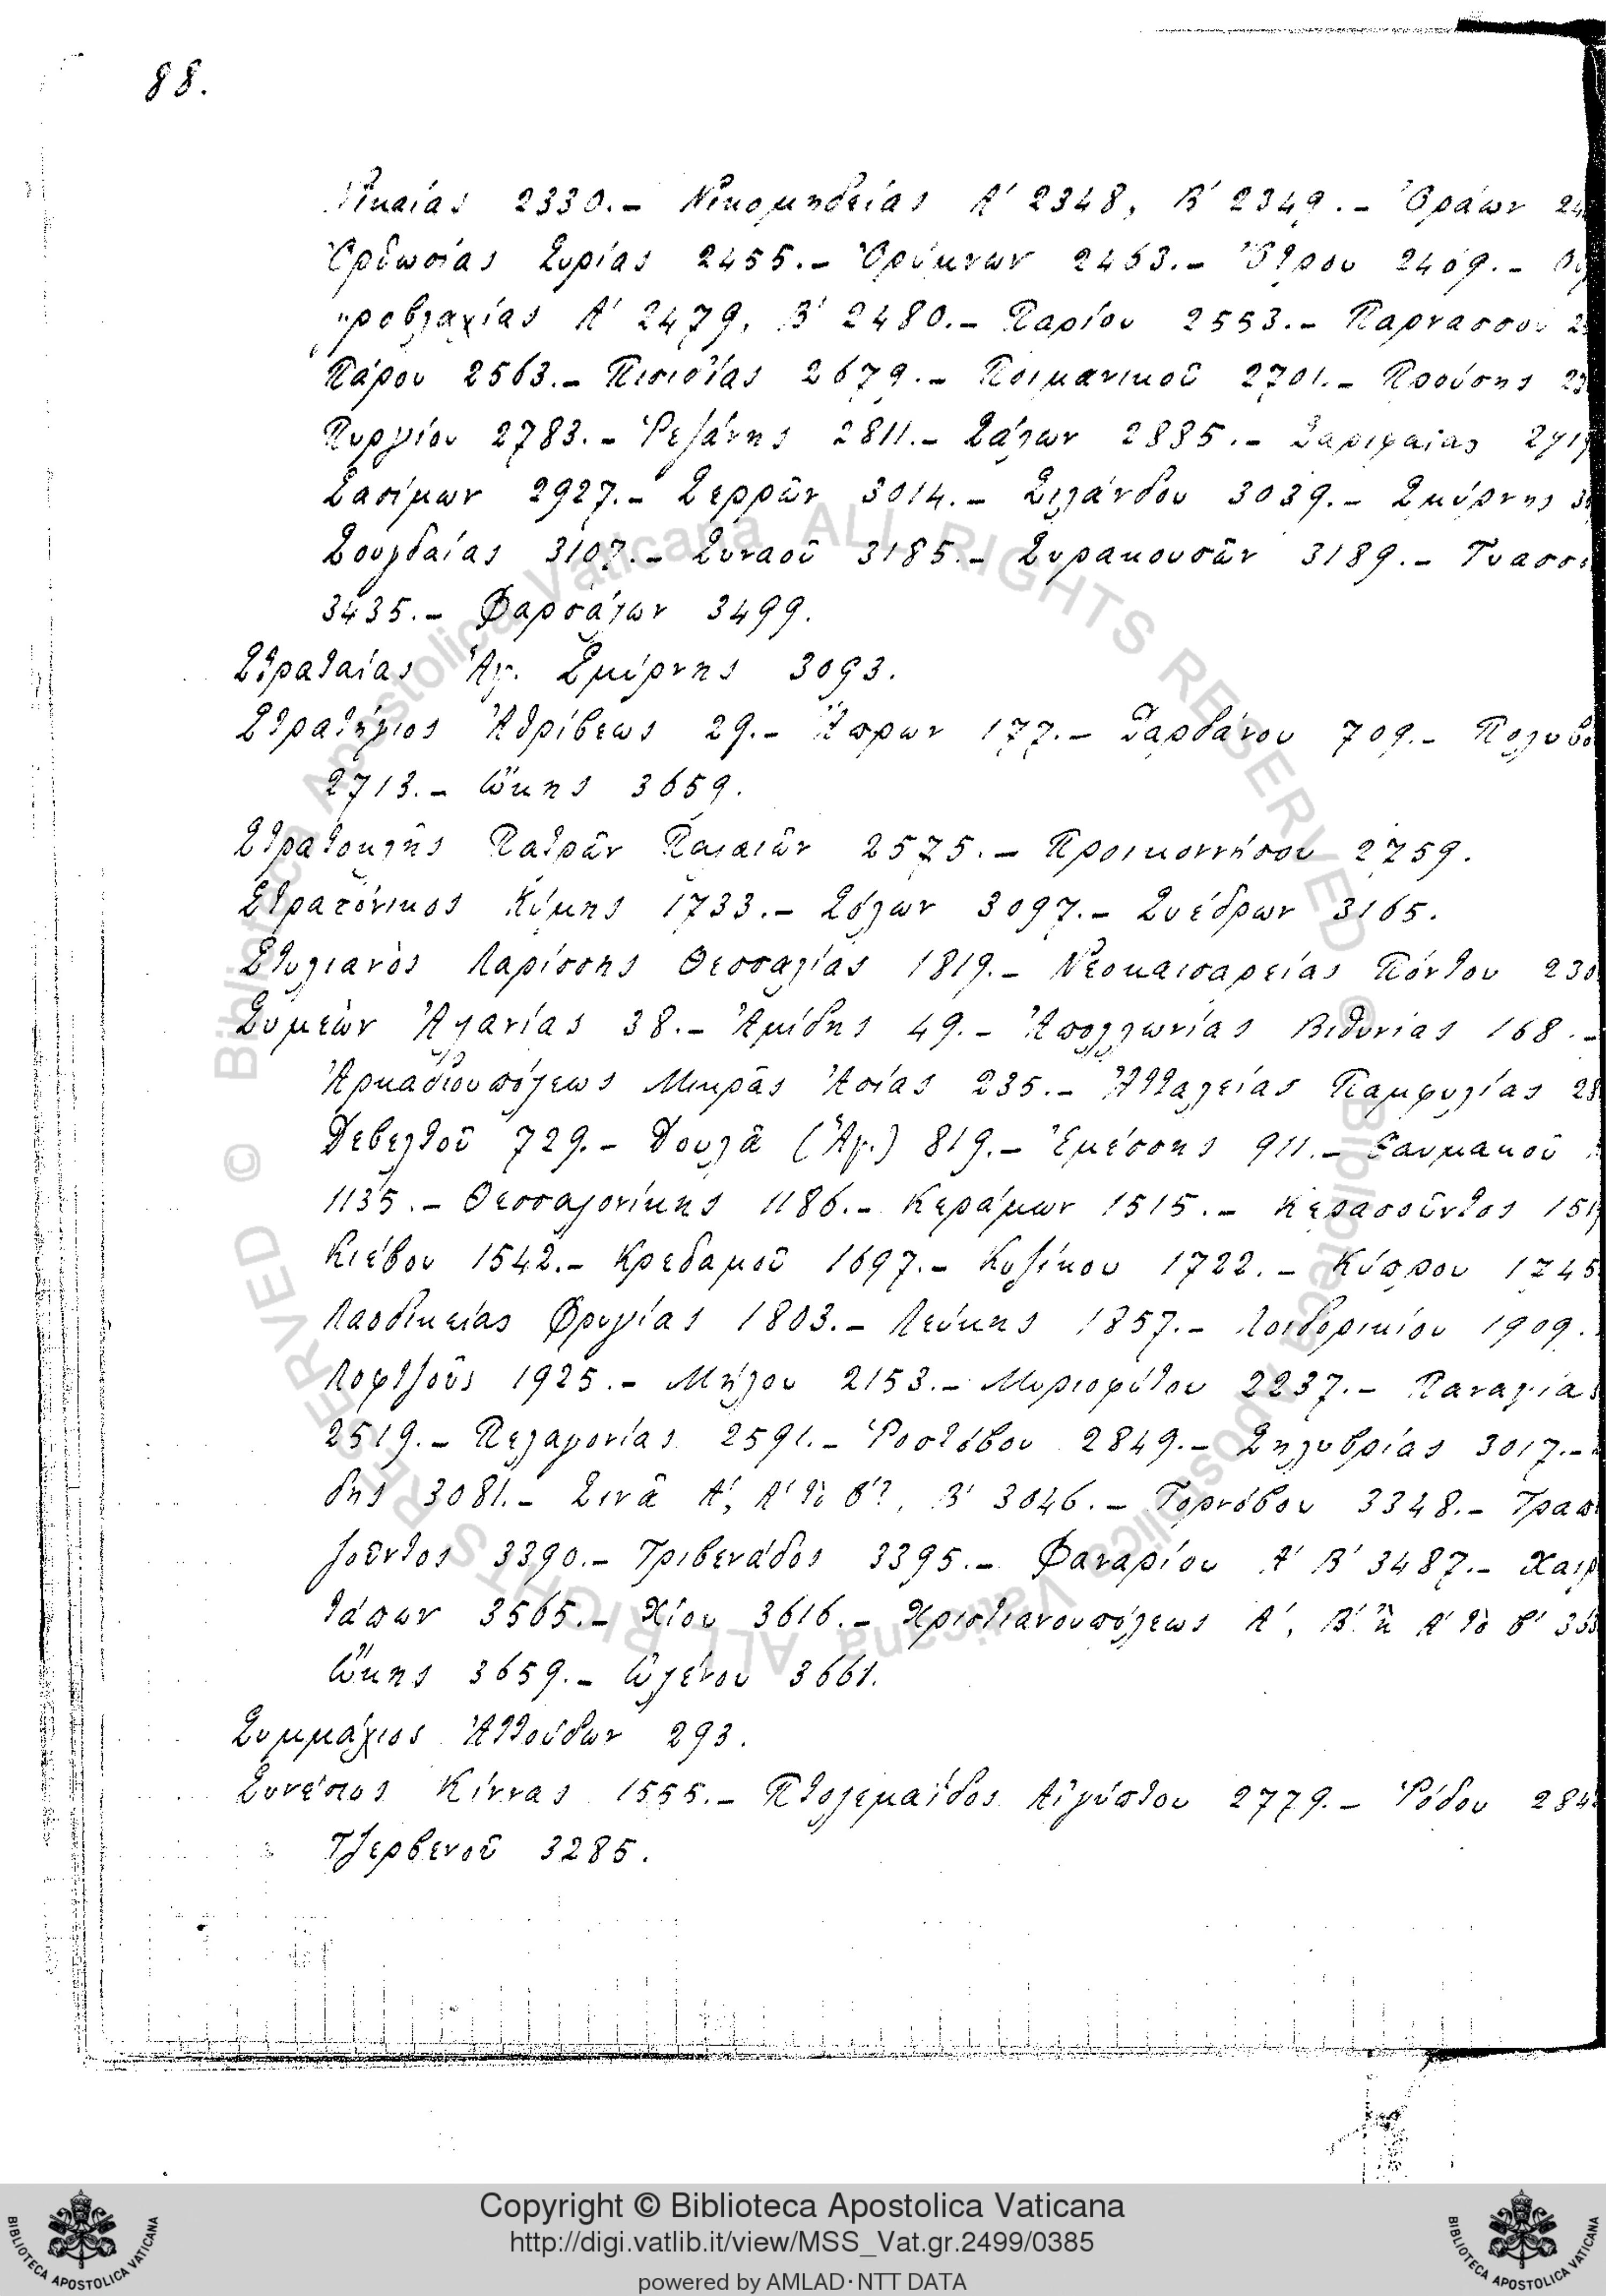 88.
Νικαίας 2330.– Νικομηδείας Α΄ 2348, Β΄ 2349.– Ὀράων
Ὀρθωσίας Συρίας 2455.– Ὀρύμνων 2463.– Ὄτρου 2469.–
προβλαχίας Α΄ 2479, Β΄ 2480.– Παρίου 2553.– Παρνασσοῦ
Πάρου 2563.– Πισιδίας 2679.– Ποιμανικοῦ 2701.– Προύσης
Πυργίου 2783.– Ῥεζάνης 2811.– Σάλων 2885.– Σαριφαίας
Σασίμων 2927.– Σερρῶν 3014.– Σιλάνδου 3039.– Σμύρνης
Σουγδαίας 3107.– Συναοῦ 3185.– Συρακουσῶν 3189.–
3435.– Φαρσάλων 3499.
Στραταίας Ἁγ. Σμύρνης 3093.
Στρατήγιος Ἀθρίβεως 29.– Ἄπρων 177.– Δαρδάνου 709.–
2713.– Ὤκης 3659.
Στρατοκλῆς Πατρῶν Παλαιῶν 2575.– Προικοννήσου 2759.
Στρατόνικος Κύμης 1733.– Σόλων 3097.– Συέδρων 3165.
Στυλιανὸς Λαρίσσης Θεσσαλίας 1819.– Νεοκαισαρείας Πόντου
Συμεὼν Ἀλανίας 38.– Ἀμίδης 49.– Ἀπολλωνίας Βιθυνίας 168.–
Ἀρκαδιουπόλεως Μικρᾶς Ἀσίας 235.– Ἀτταλείας Παμφυλίας
Δεβελτοῦ 729.– Δουλᾶ (Ἁγ.) 819.– Ἐμέσσης 911.– Εαυμακοῦ
1135.– Θεσσαλονίκης 1186.– Κεράμων 1515.– Κερασοῦντος
Κιέβου 1542.– Κρεδαμοῦ 1697.– Κυζίκου 1722.– Κύπρου 1745
Λαοδικείας Φρυγίας 1803.– Λεύκης 1857.– Λοιδορικίου 1909.
Λοφτζοῦς 1925.– Μήλου 2153.– Μυριοφύτου 2237.– Παναγίας
2519.– Πελαγονίας 2591.– Ῥοστόβου 2849.– Σηλυβρίας 3017.–
δης 3081.– Σινᾶ Α΄, Α΄ τὸ β΄?, Β΄ 3046.– Τορνόβου 3348.– Τραπ
ζοῦντος 3390.– Τριβενάδος 3395.– Φαναρίου Α΄ Β΄ 3487.–
τάπων 3565.– Χίου 3616.– Χριστιανουπόλεως Α΄, Β΄ ἢ Α΄ τὸ β΄
Ὤκης 3659.– Ὠλένου 3661.
Συμμάχιος Ἀττούδων 293.
Συνέσιος Κίννας 1555.– Πτολεμαΐδος Αἰγύπτου 2779.– Ῥόδου
Τζερβενοῦ 3285.
© Biblioteca Apostolica Vaticana ALL RIGHTS RESERVED
Copyright © Biblioteca Apostolica Vaticana
http://digi.vatlib.it/view/MSS_Vat.gr.2499/0385
powered by AMLAD·NTT DATA
BIBLIOTECA APOSTOLICA VATICANA
BIBLIOTECA APOSTOLICA VATICANA